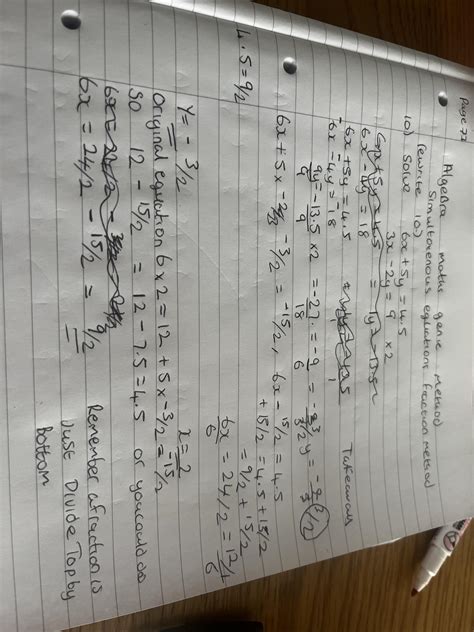 Page 22
Algebra maths genie method
Simultaneous equations fraction method
rewrite 10)
10) Solve 6x + 5y = 4.5
3x - 2y = 9 x2
6x + 5y = 4.5
6x - 4y = 18
6x + 5y = 4.5 Takeaway
- 6x - 4y = 18
9y = -13.5 x2 = -27 = -9 = -3/2 y = -3/2
9 9 18 6
6x + 5x -3/2 = -15/2, 6x - 15/2 = 4.5
+ 15/2 = 4.5 + 15/2
4.5 = 9/2
= 9/2 + 15/2
6x = 24/2 = 12/6
6
Y = - 3/2 x = 2
original equation 6x2 = 12 + 5x -3/2 = -15/2
so 12 - 15/2 = 12 - 7.5 = 4.5 or you could do
6x = 24/2 - 15/2 = 9/2
Remember a fraction is
Just Divide Top by
Bottom